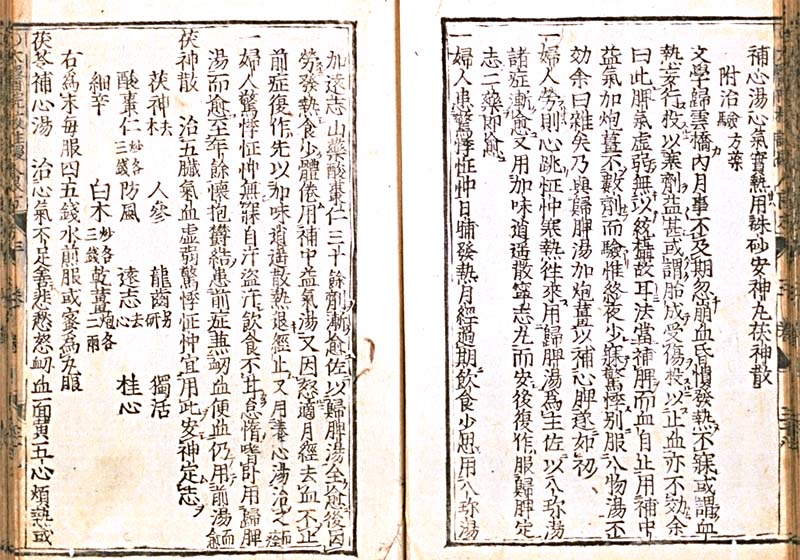 補心湯心氣實熱用硃砂安神丸茯神散
附治驗方藥
文學歸雲橋內月事不及期忽崩血昏憒發熱不寐或謂血
熱妄行投以寒劑益甚或謂胎成受傷投以止血亦不效余
曰此脾氣虛弱無以統攝故耳法當補脾而血自止用補中
益氣加炮薑不數劑而驗惟終夜少寐驚悸別服八物湯不
效余曰雜矣乃與歸脾湯加炮薑以補心脾遂如初
一婦人勞則心跳怔忡寒熱徃來用歸脾湯爲主佐以八珍湯
諸症漸愈又用加味逍遙散寧志丸而安後復作服歸脾定
志二藥即愈
一婦人患驚悸怔忡日晡發熱月經過期飲食少思用八珍湯
加遠志山藥酸棗仁三十餘劑漸愈佐以歸脾湯全愈後因
勞發熱食少體倦用補中益氣湯又因怒適月經去血不止
前症復作先以加味逍遙散熱退經止又用養心湯治之而痊
一婦人驚悸怔忡無寐自汗盜汗飲食不甘怠惰嗜臥用歸脾
湯而愈至年餘懷抱欝結患前症兼衂血便血仍用前湯而愈
茯神散 治五臟氣血虛弱驚悸怔忡宜用此安神定志
茯神木 人參 龍齒另研 獨活
酸棗仁炒各三錢 防風 遠志去心 桂心
細辛 白朮炒各三錢 乾薑炮各二兩
右爲末每服四五錢水煎服或蜜爲丸服
茯苓補心湯 治心氣不足善悲愁怒衂血面黃五心煩熱或